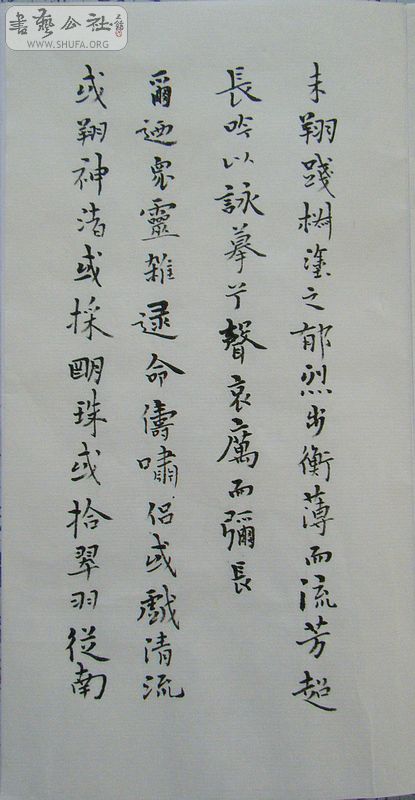 書藝公社
WWW.SHUFA.ORG
未翔踐椒塗之郁烈步衡薄而流芳超
長吟以詠慕兮聲哀厲而彌長
爾迺衆靈雜逯命儔嘯侶或戲清流
或翔神渚或採明珠或拾翠羽從南